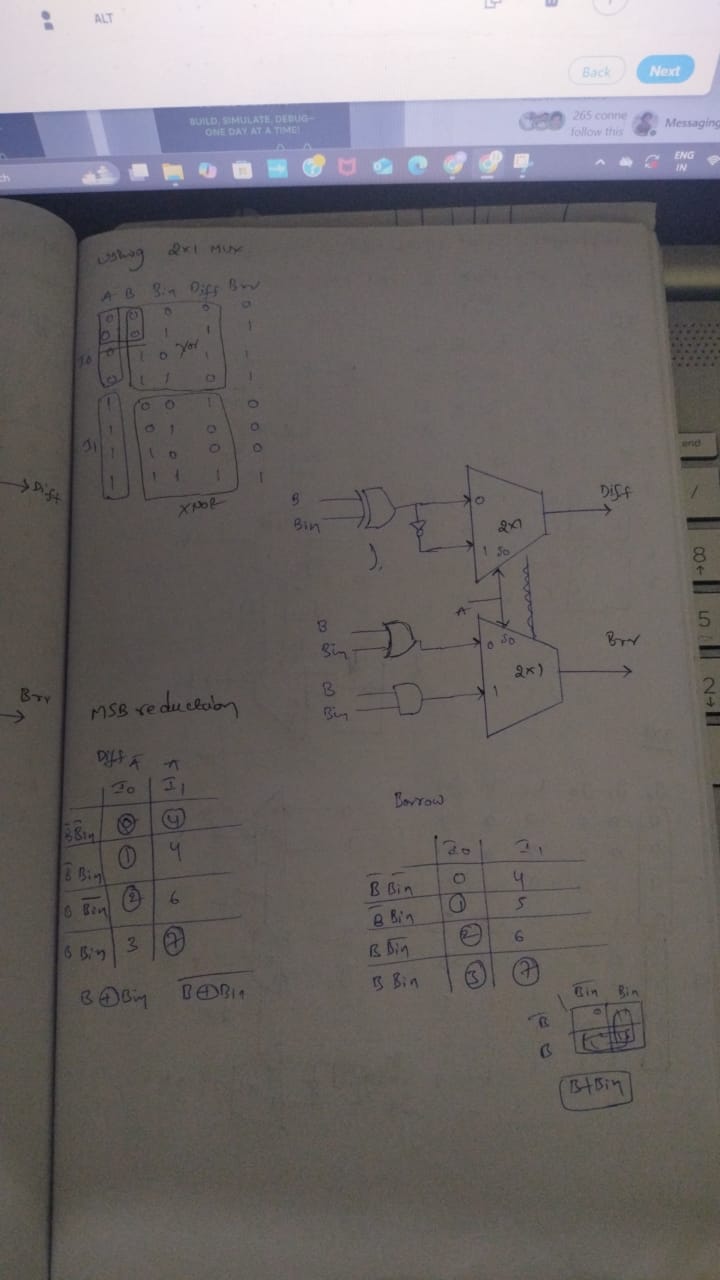 ALT
Back
Next
BUILD, SIMULATE, DEBUG—
ONE DAY AT A TIME!
265 conne
follow this
Messaging
ch
ENG
IN
using 2x1 mux
A B Bin Diff Brr
0 0 0 0 0
0 0 1 1 1
I0
0 1 0 Xor 1 1
0 1 1 0 1
1 0 0 1 0
1 0 1 0 0
I1
1 1 0 0 0
1 1 1 1 1
XNOR
Diff
B
Bin
0
2x1
1 S0
Diff
A
B
Bin
0 S0
2x1
Brr
B
Bin
1
Brr
end
/
8
5
2
MSB reduction
Diff A̅ A
I0 I1
B̅ B̅i̅n̅ 0 4
B̅ Bin 1 4
B B̅i̅n̅ 2 6
B Bin 3 7
B⊕Bin B̅⊕̅B̅i̅n̅
Borrow
I0 I1
B̅ B̅i̅n̅ 0 4
B̅ Bin 1 5
B B̅i̅n̅ 2 6
B Bin 3 7
B̅i̅n̅ Bin
B̅ 0
B
B+Bin